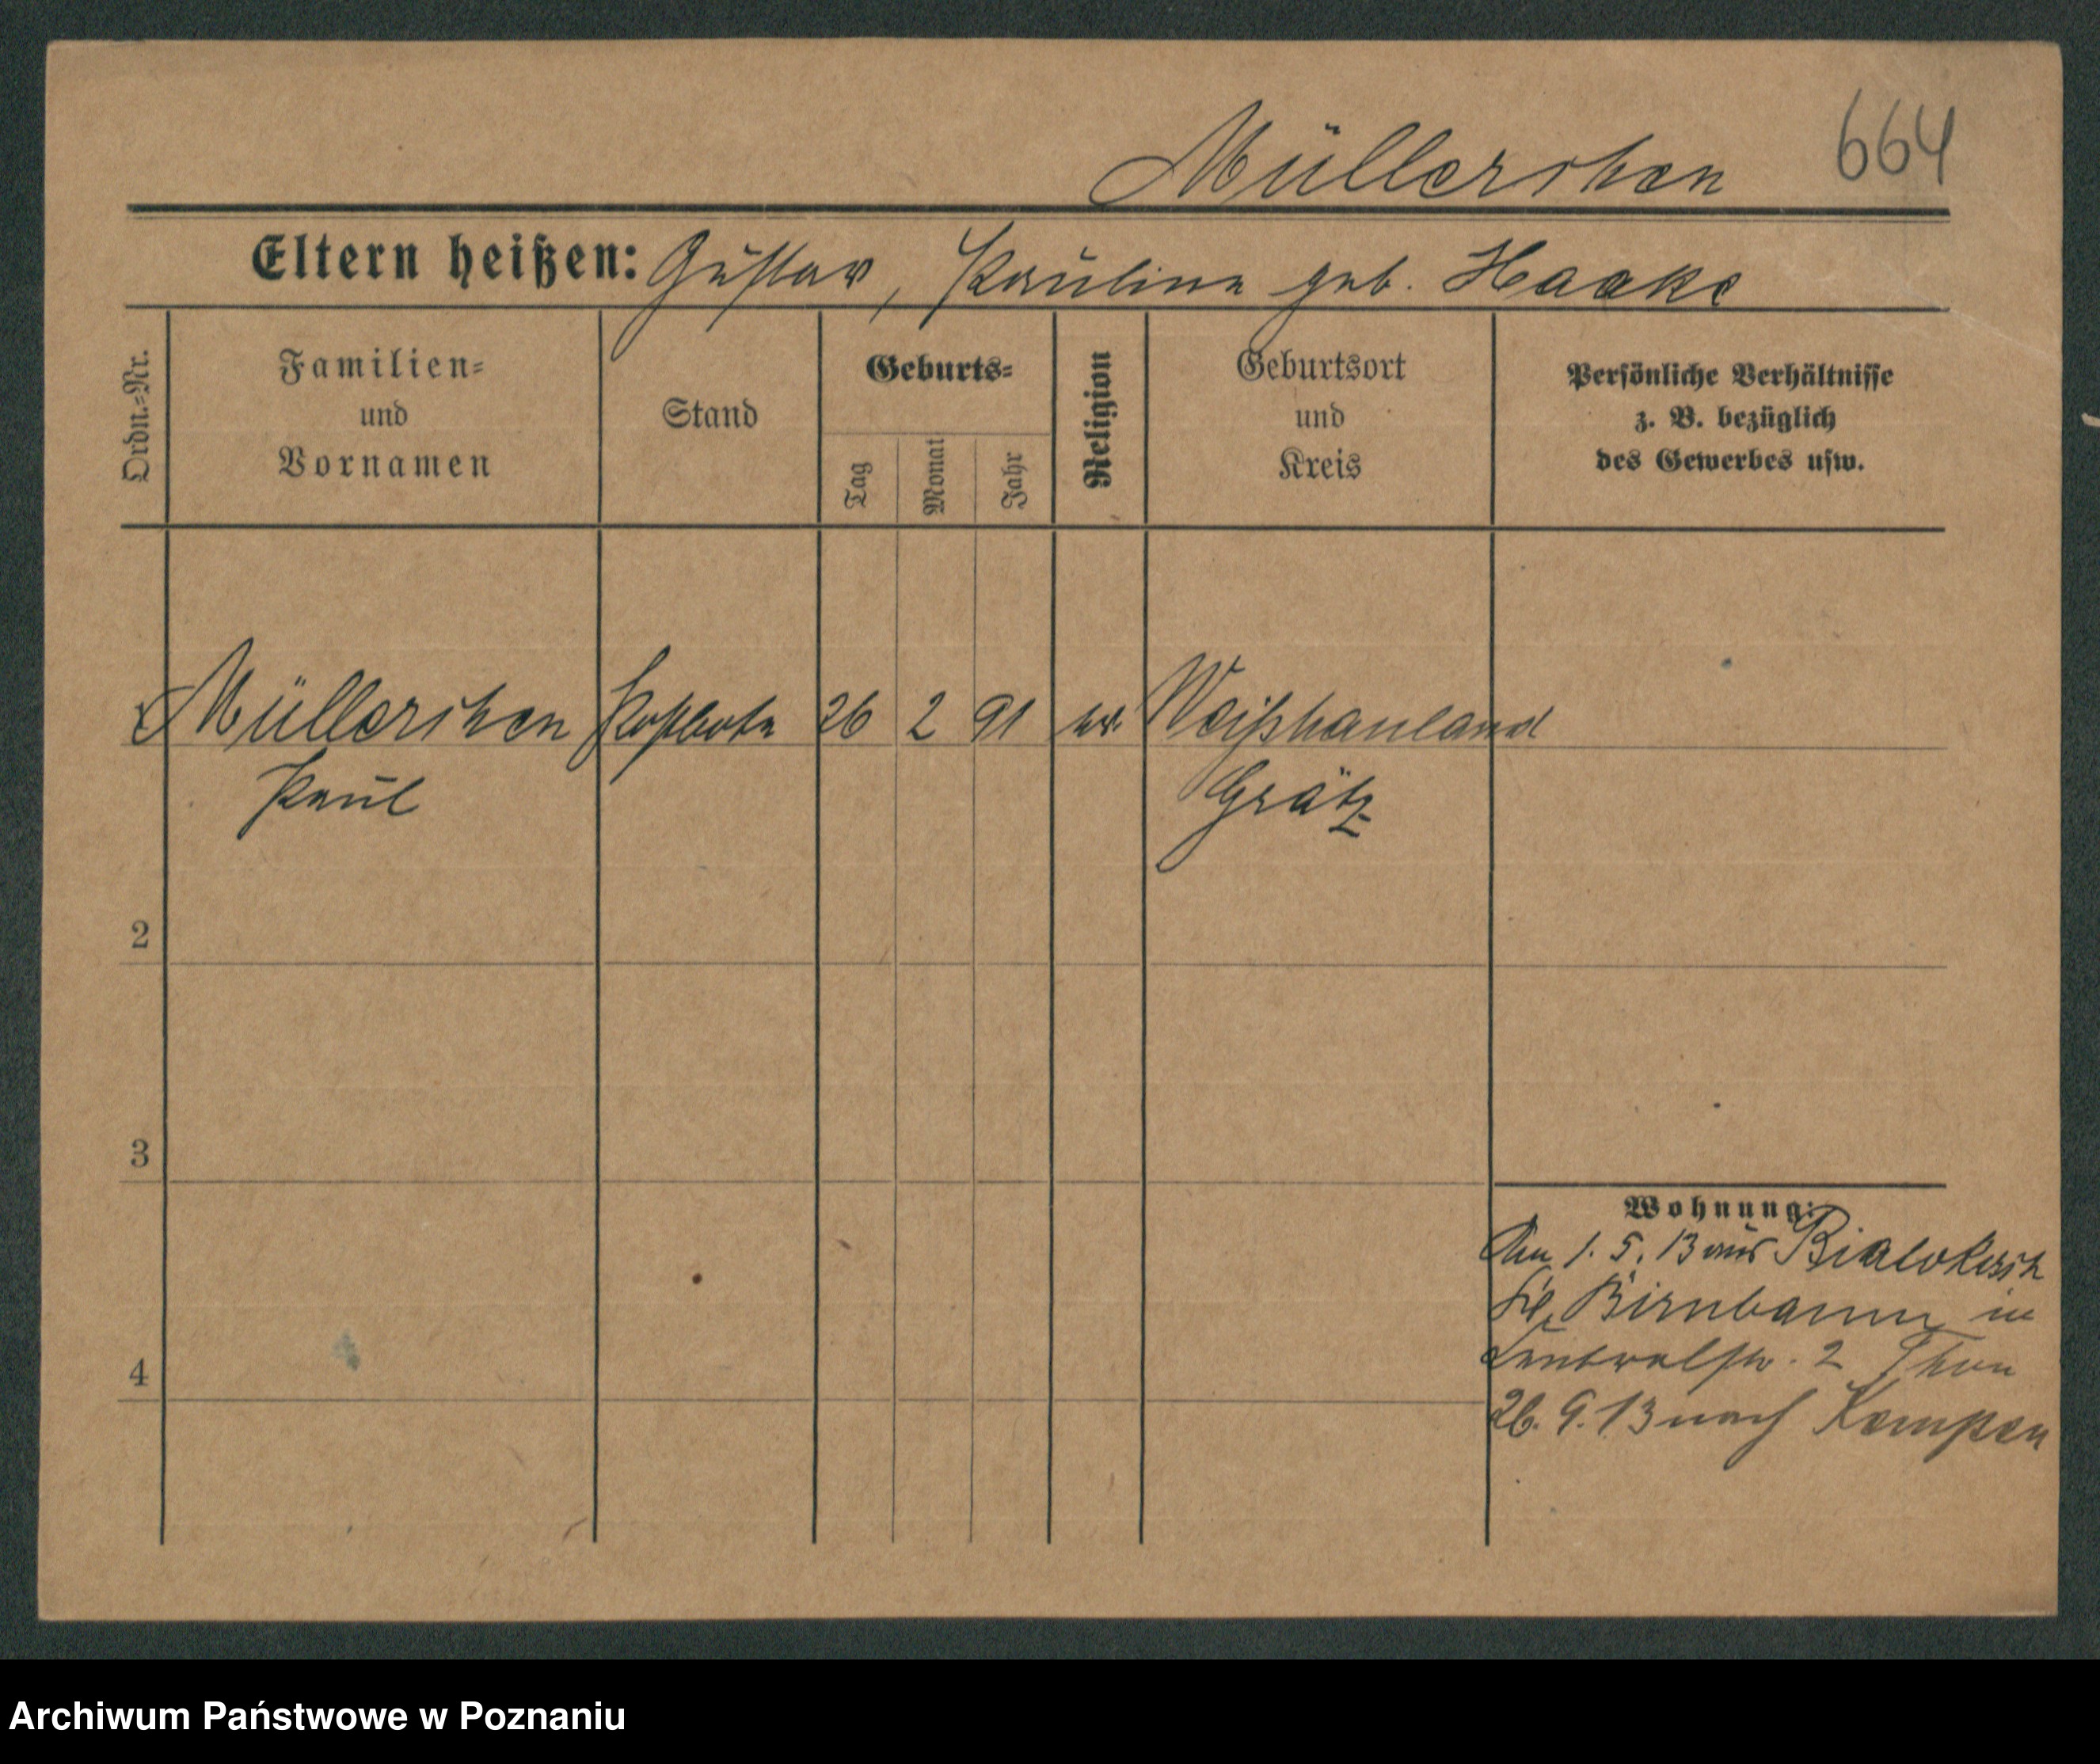 Müllerchen 664
Eltern heißen: Gustav, Pauline geb. Haake
Ordn.=Nr.
Familien=
und
Vornamen
Stand
Geburts=
Tag
Monat
Jahr
Religion
Geburtsort
und
Kreis
Persönliche Verhältnisse
z. B. bezüglich
des Gewerbes usw.
Müllerchen Postbote 26 2 91 ev. Weißhauland
Paul Grätz
2
3
4
Wohnung:
Am 1. 5. 13 aus Bialokosch
Birnbaum in
2
26. 9. 13 nach Kempen
Archiwum Państwowe w Poznaniu